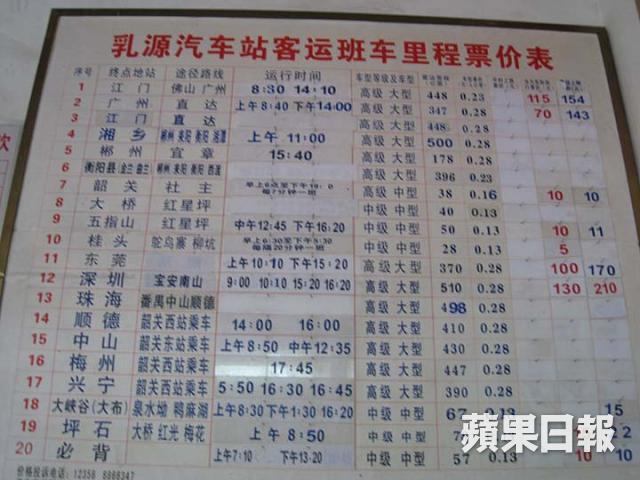 乳源汽车站客运班车里程票价表
序号 终点地站 途径路线 运行时间 车型等级及车型
1 江门 佛山 广州 8:30 14:10 高级 大型 448 0.23 115 154
2 广州 直达 上午8:40 下午14:00 高级 大型 347 0.28 70 143
3 江门 直达 高级 大型 448 0.28
4 湘乡 郴州 耒阳 衡阳 湘潭 上午 11:00 高级 大型 500 0.28
5 郴州 宜章 15:40 高级 大型 178 0.28
6 衡阳县(金兰 曲兰) 郴州 耒阳 衡阳 西渡 高级 大型 396 0.23
7 韶关 社主 每7分钟一班 高级 中型 38 0.16 10 10
8 大桥 红星坪 中级 中型 40 0.13
9 五指山 红星坪 中午12:45 下午16:20 中级 中型 50 0.13 10 11
10 桂头 鸵鸟寨 柳坑 早上6:30至下午5:30 每隔20分钟一班 中级 中型 28 0.13 5
11 东莞 上午10:10 下午15:20 高级 大型 370 0.28 100 170
12 深圳 宝安南山 9:00 10:10 15:20 16:20 高级 大型 510 0.28 130 210
13 珠海 番禺中山顺德 高级 大型 498 0.28
14 顺德 韶关西站乘车 14:00 16:00 高级 大型 410 0.28
15 中山 韶关东站乘车 上午8:50 中午12:35 高级 大型 430 0.28
16 梅州 韶关西站乘车 17:45 高级 大型 447 0.28
17 兴宁 韶关西站乘车 5:50 16:30 16:45 高级 大型 390 0.28
18 大峡谷(大布) 泉水坳 鸭麻湖 上午8:30 下午1:30 16:20 中级 中型 67 0.13 15
19 坪石 大桥 红光 梅花 上午 8:50 中级 中型
20 必背 上午7:10 下午13:20 中级 中型 57 0.13
价格投诉电话:12358 8888347
蘋果日報